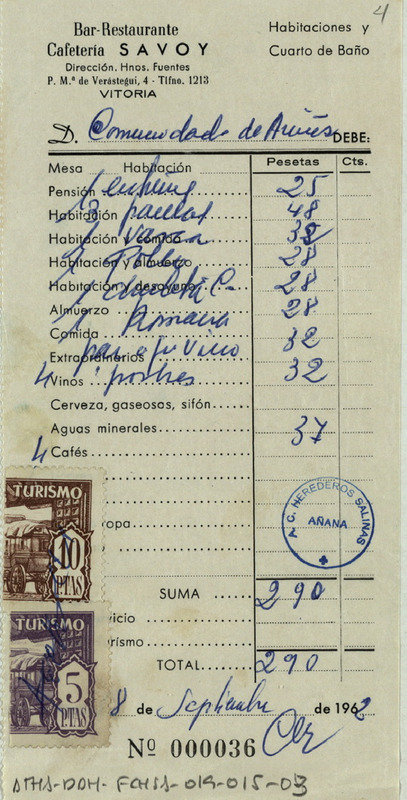 4
Bar-Restaurante
Cafetería SAVOY
Dirección. Hnos. Fuentes
P. M.ª de Verástegui, 4 - Tlfno. 1213
VITORIA
Habitaciones y
Cuarto de Baño
D. Comunidad de DEBE:
Mesa Habitación Pesetas Cts.
Pensión 25
Habitación 48
Habitación y comida
Habitación y almuerzo 28
Habitación y desayuno 28
Almuerzo Romana 28
Comida pan 32
Extraordinarios vino
4 Vinos postres 32
Cerveza, gaseosas, sifón
Aguas minerales 37
4 Cafés
A. C. HEREDEROS SALINAS
AÑANA
opa
SUMA 290
vicio
rismo
TOTAL 290
TURISMO
10
PTAS
TURISMO
5
PTAS
8 de Septiembre de 1962
Nº 000036
ATHA-DAH-FCHSA-019-015-03